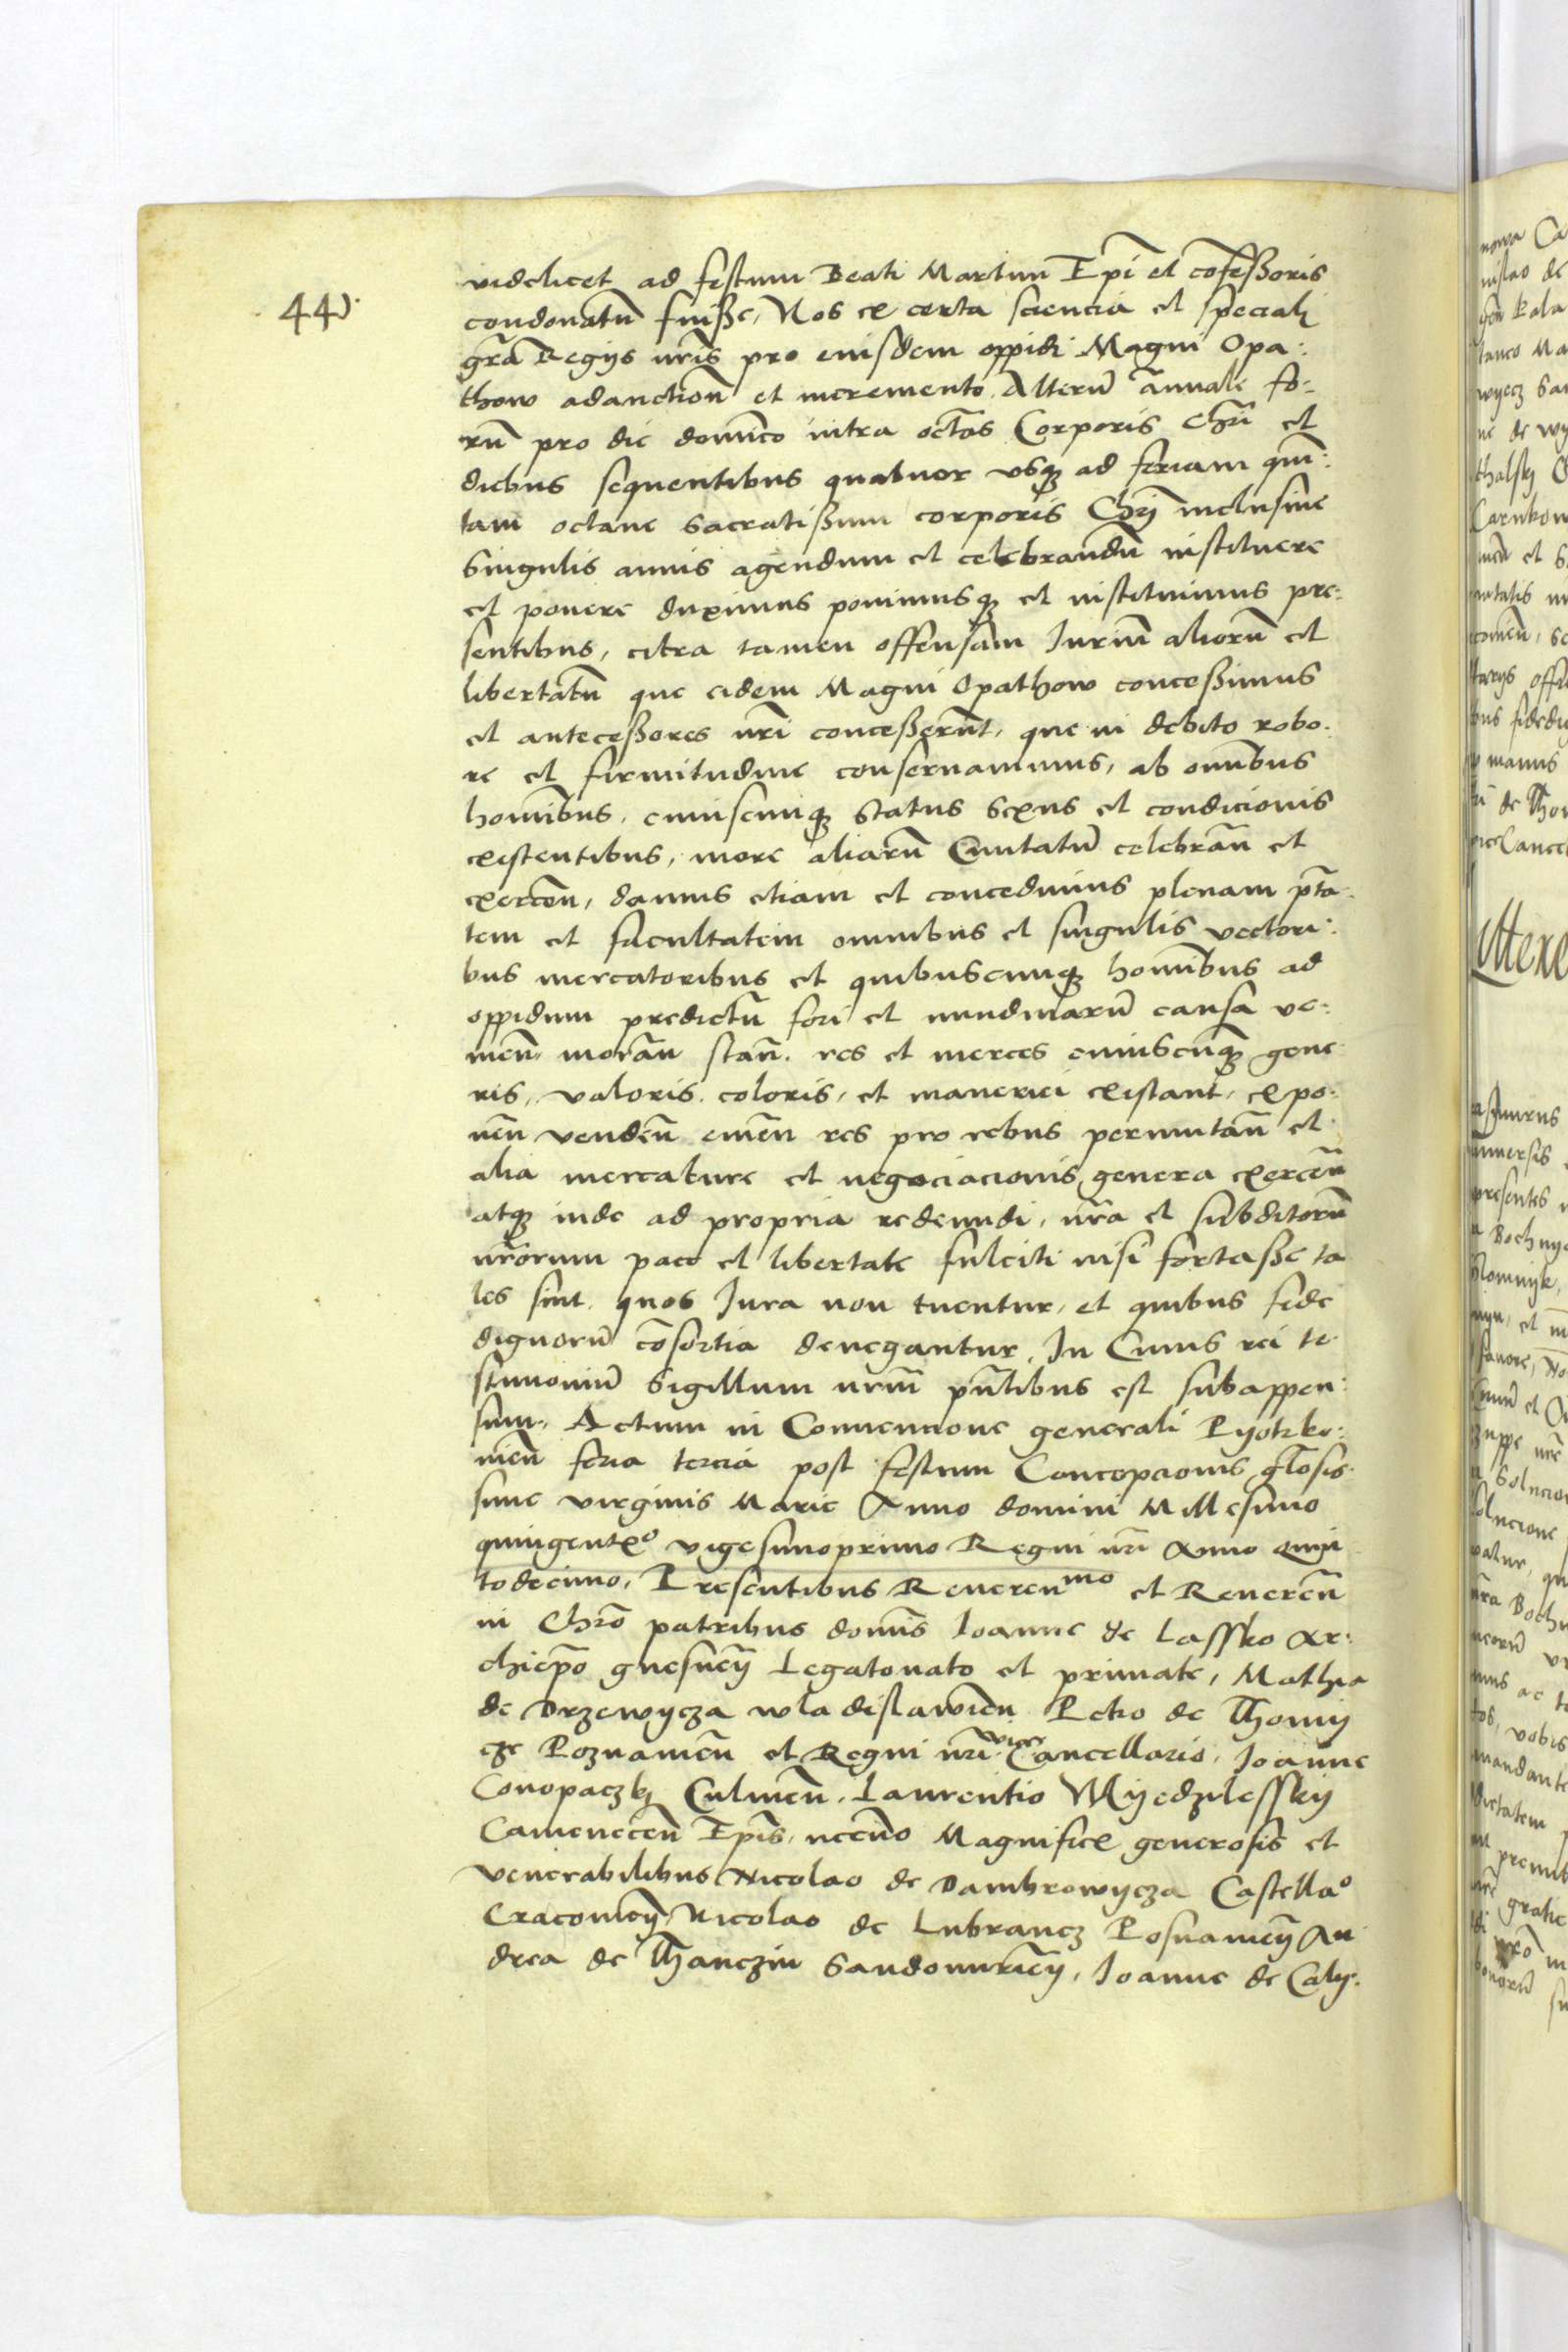 44).
videlicet ad festum Beati Martini Epī et cōfeßoris
condonatū fuiße, Nos ex certa sciencia et speciali
grā Regijs nrīs pro eiusdem oppidi Magni Opa:
thow adauctioñ et incremento. Alterū ānuale fo-
rū pro die domīco intra octās Corporis Chrī et
diebus sequentibus quatuor vsq3 ad feriam quī:
tam octaue sacratißimi corporis Chrī inclusiue
Singulis annis agendum et celebrandū instituere
et ponere duximus ponimusq3 et instituimus pre:
sentibus, citra tamen offensam Iuriū aliorū et
libertatū que eidem Magni Opathow conceßimus
et anteceßores nrī conceßerūt, que in debito robo:
re et firmitudine conseruamimus, ab omībus
homībus. cuiuscuiq3 Status Sexus et condicionis
existentibus, more aliarū Ciuitatū celebrāñ et
exerceñ, damus etiam et concedimus plenam ptā
tem et facultatem omnibus et singulis vectori:
bus mercatoribus et quibuscumq3 homībus ad
oppidum predictū fori et nundinarū causa ve:
nieñ. morāñ stañ. res et merces cuiuscūq3 gene
ris, valoris. coloris, et maneriei existant, expo:
neñ vendeñ emeñ res pro rebus permutañ et
alia mercature et negociacionis genera exerceñ
atq3 inde ad propria redeundi, nrā et subditorū
nrōrum pace et libertate fulciti nisi fortaße ta
les sint. quos Iura non tuentur, et quibus fide
dignorū cōsortia denegantur. In Cuius rei te
stimoniū Sigillum nrūm pñtibus est subappen:
sum. Actum in Conuencione generali Pyotrko:
uieñ feria tercia post festum Concepcionis glōsis
sime virginis Marie Anno domini Millesimo
quingentxo vigesimoprimo Regni nrī Anno quin
todecimo, Presentibus Reverenmo et Reuereñ
in Chrō patribus domīs Ioanne de Lassko Ar:
chiepō gnesneñ Legatonato et primate, Mathia
de Drzewycza wladislawieñ Petro de Thomy
cze Poznanieñ et Regni nrī vice Cancellario, Ioanne
Conopaczky Culmeñ. Laurentio Myedzilesskij
Cameneceñ Epīs, necno Magnifice generosis et
venerabilibus Nicolao de Dambrowycza Castellao
Cracouieñ, Nicolao de Lubrancz Posnanieñ An
drea de Thanczin Sandomirieñ, Ioanne de Caly: